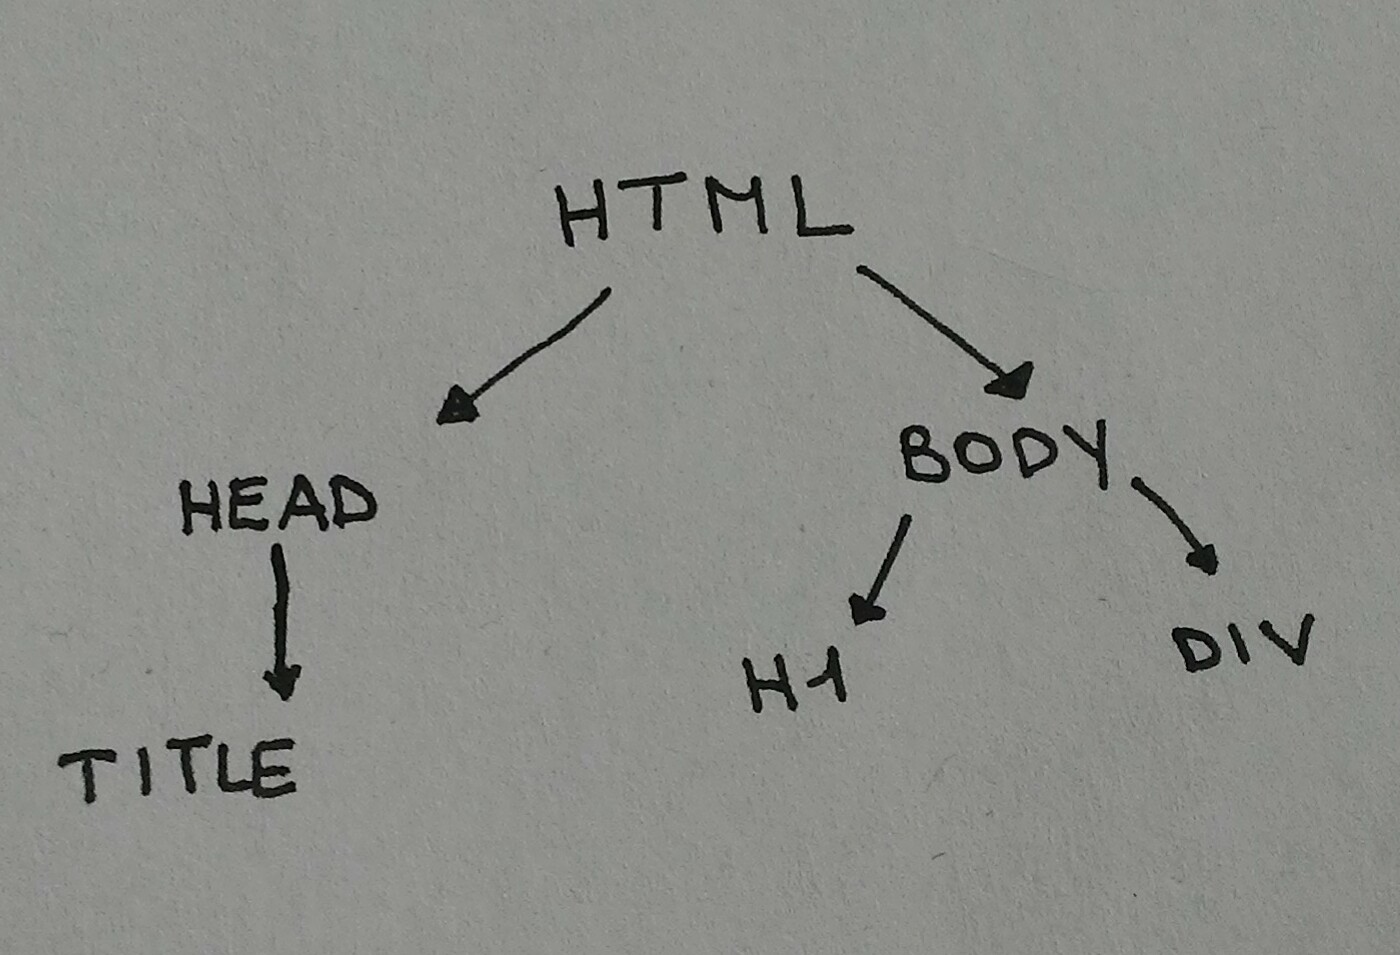 HTML
HEAD
BODY
TITLE
H1
DIV